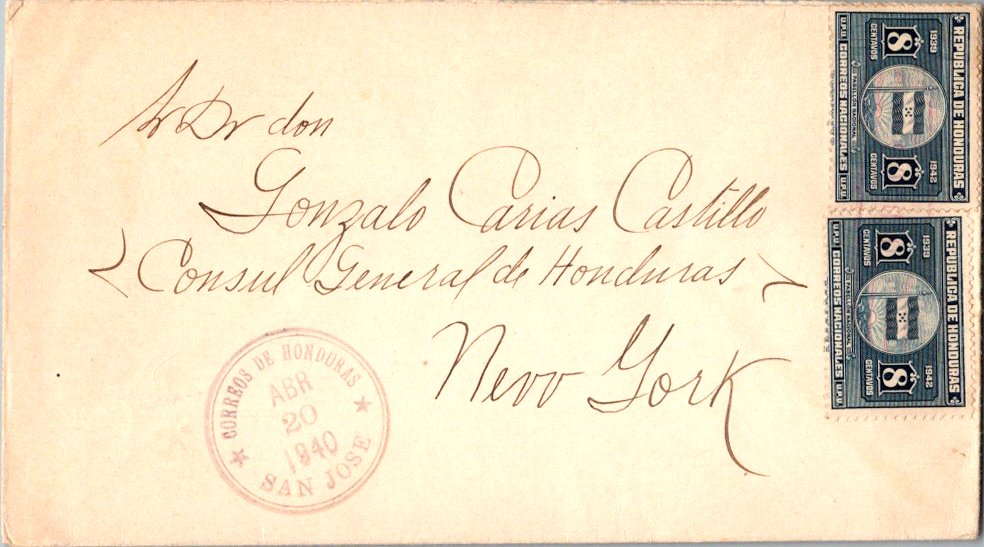 Sr Dr don
Gonzalo Carias Castillo
Consul General de Honduras
New York
CORREOS DE HONDURAS
ABR
20
1940
SAN JOSE
REPUBLICA DE HONDURAS
1939 1942
8 8
CENTAVOS CENTAVOS
U.P.U. CORREOS NACIONALES U.P.U.
REPUBLICA DE HONDURAS
1939 1942
8 8
CENTAVOS CENTAVOS
U.P.U. CORREOS NACIONALES U.P.U.